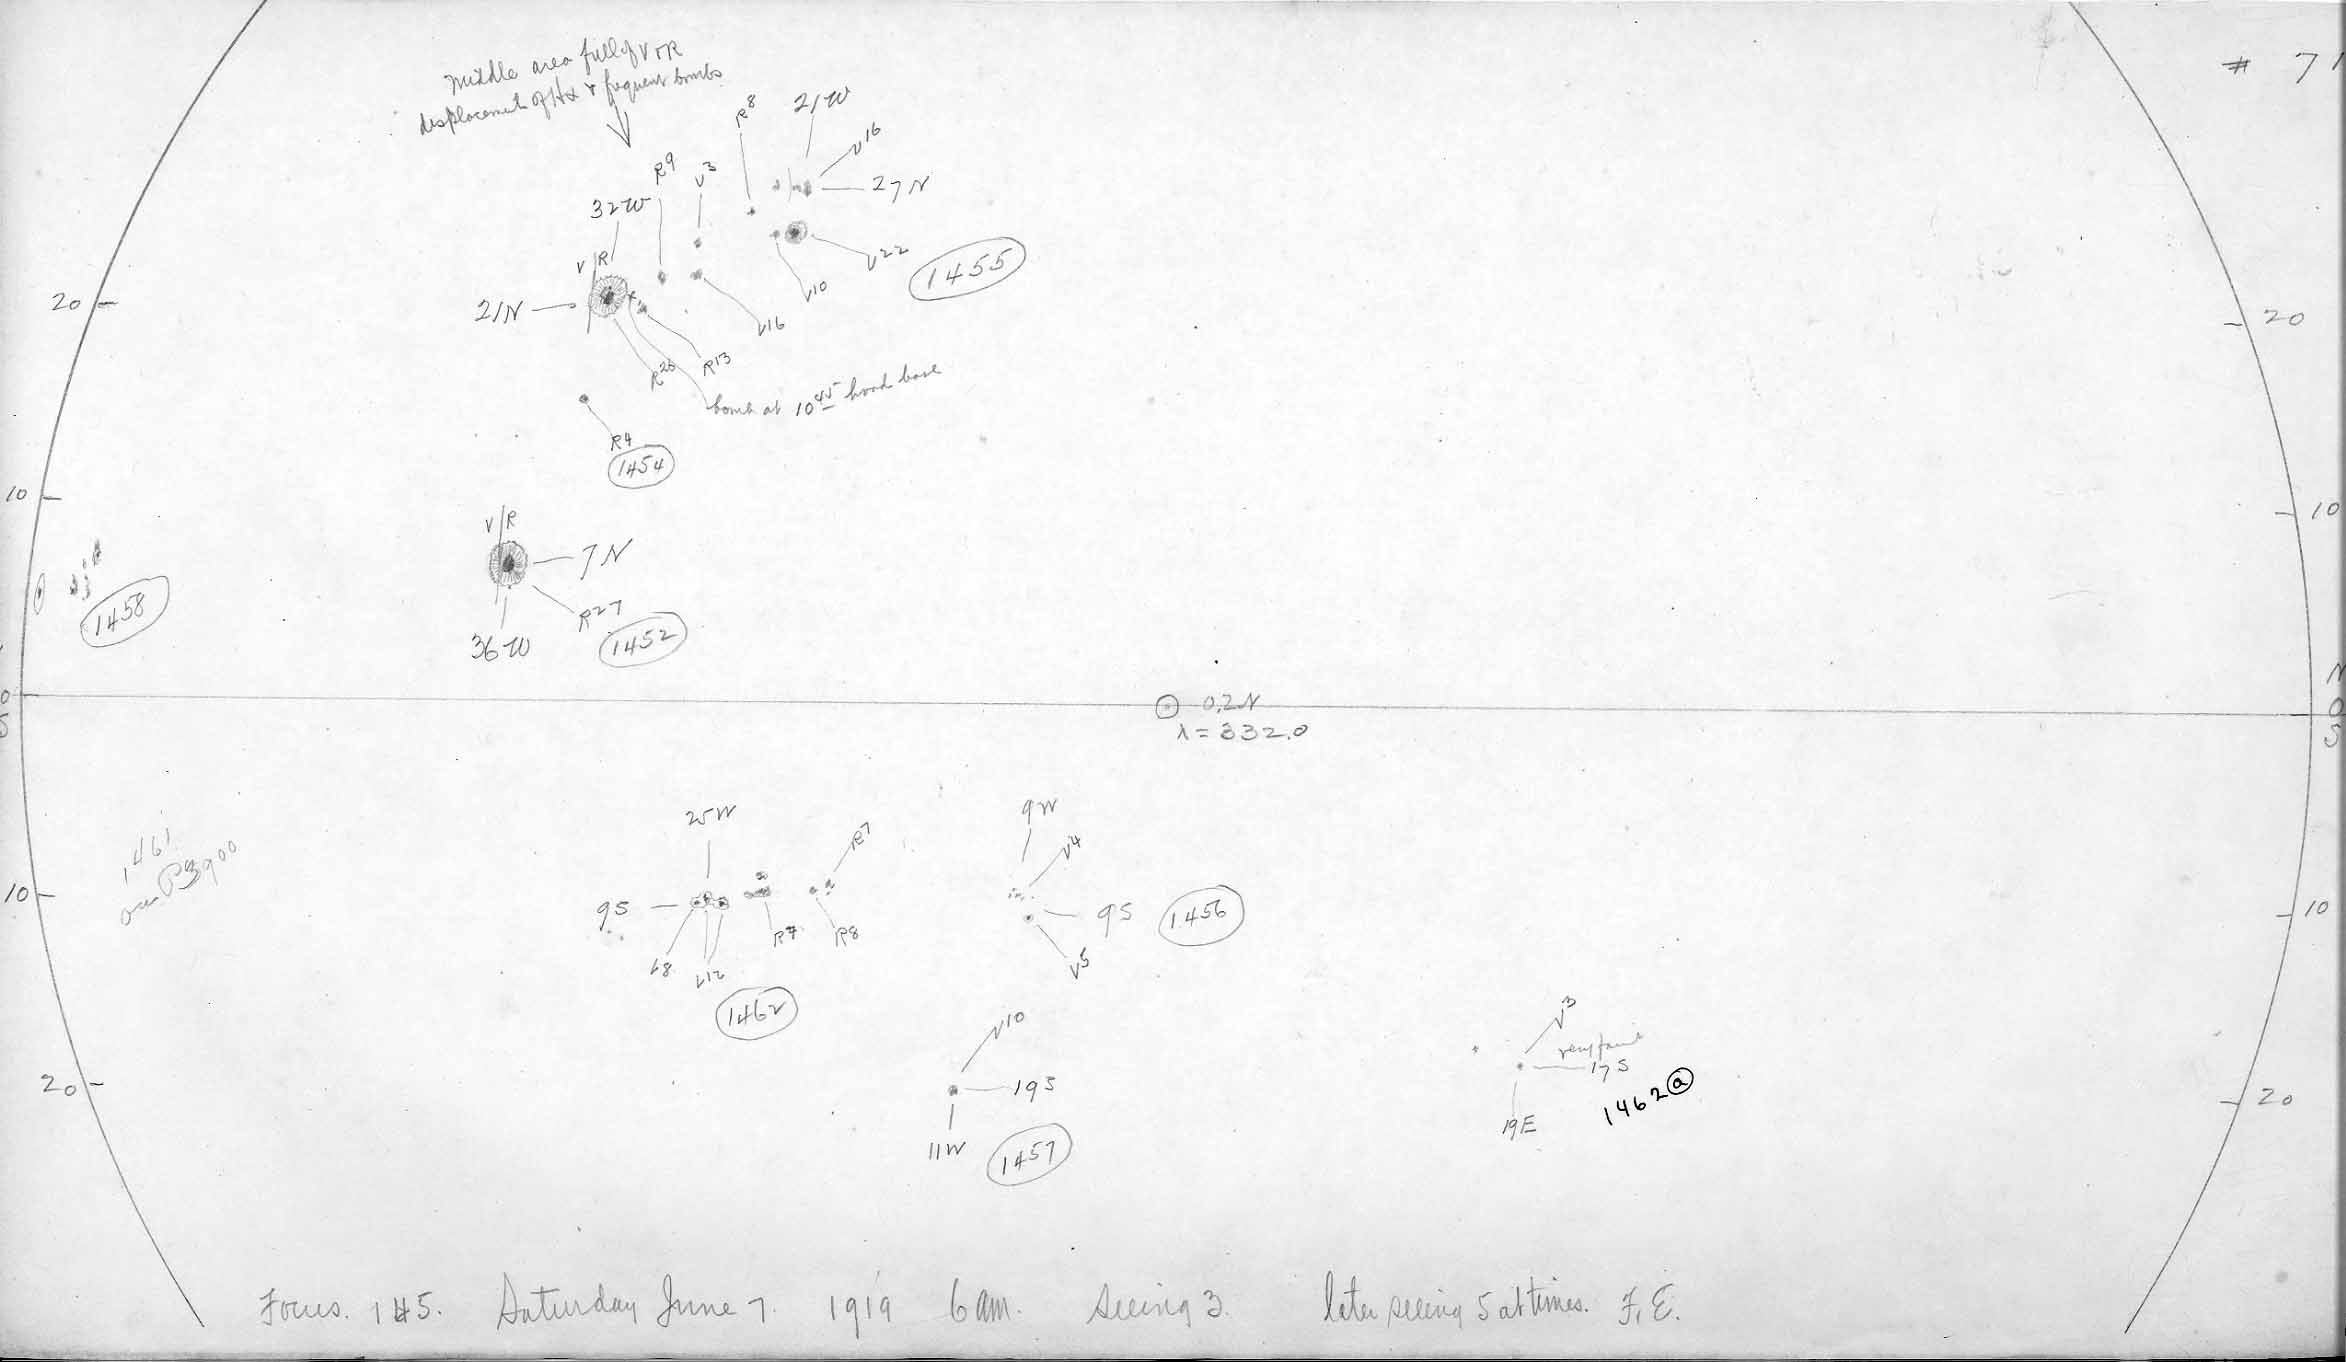 # 71
Middle area full of V + R
displacement of Hα & frequent bombs
R8
21W
V16
27N
R9
V3
32W
V R
21N
V22
1455
V10
V16
R26
R13
bomb at 10 45 broad base
20
20
R4
1454
10
10
V R
7N
R27
36W
1452
1458
0
S
N
0
S
0.2N
λ = 332.0
1461
25W
R7
9W
V4
9S
V8
V12
R7
R8
1462
9S
1456
V5
10
10
V10
19S
11W
1457
V3
very faint
17S
19E
1462 a
20
20
Focus. 145. Saturday June 7. 1919 6 am. Seeing 3. later seeing 5 at times. F.E.